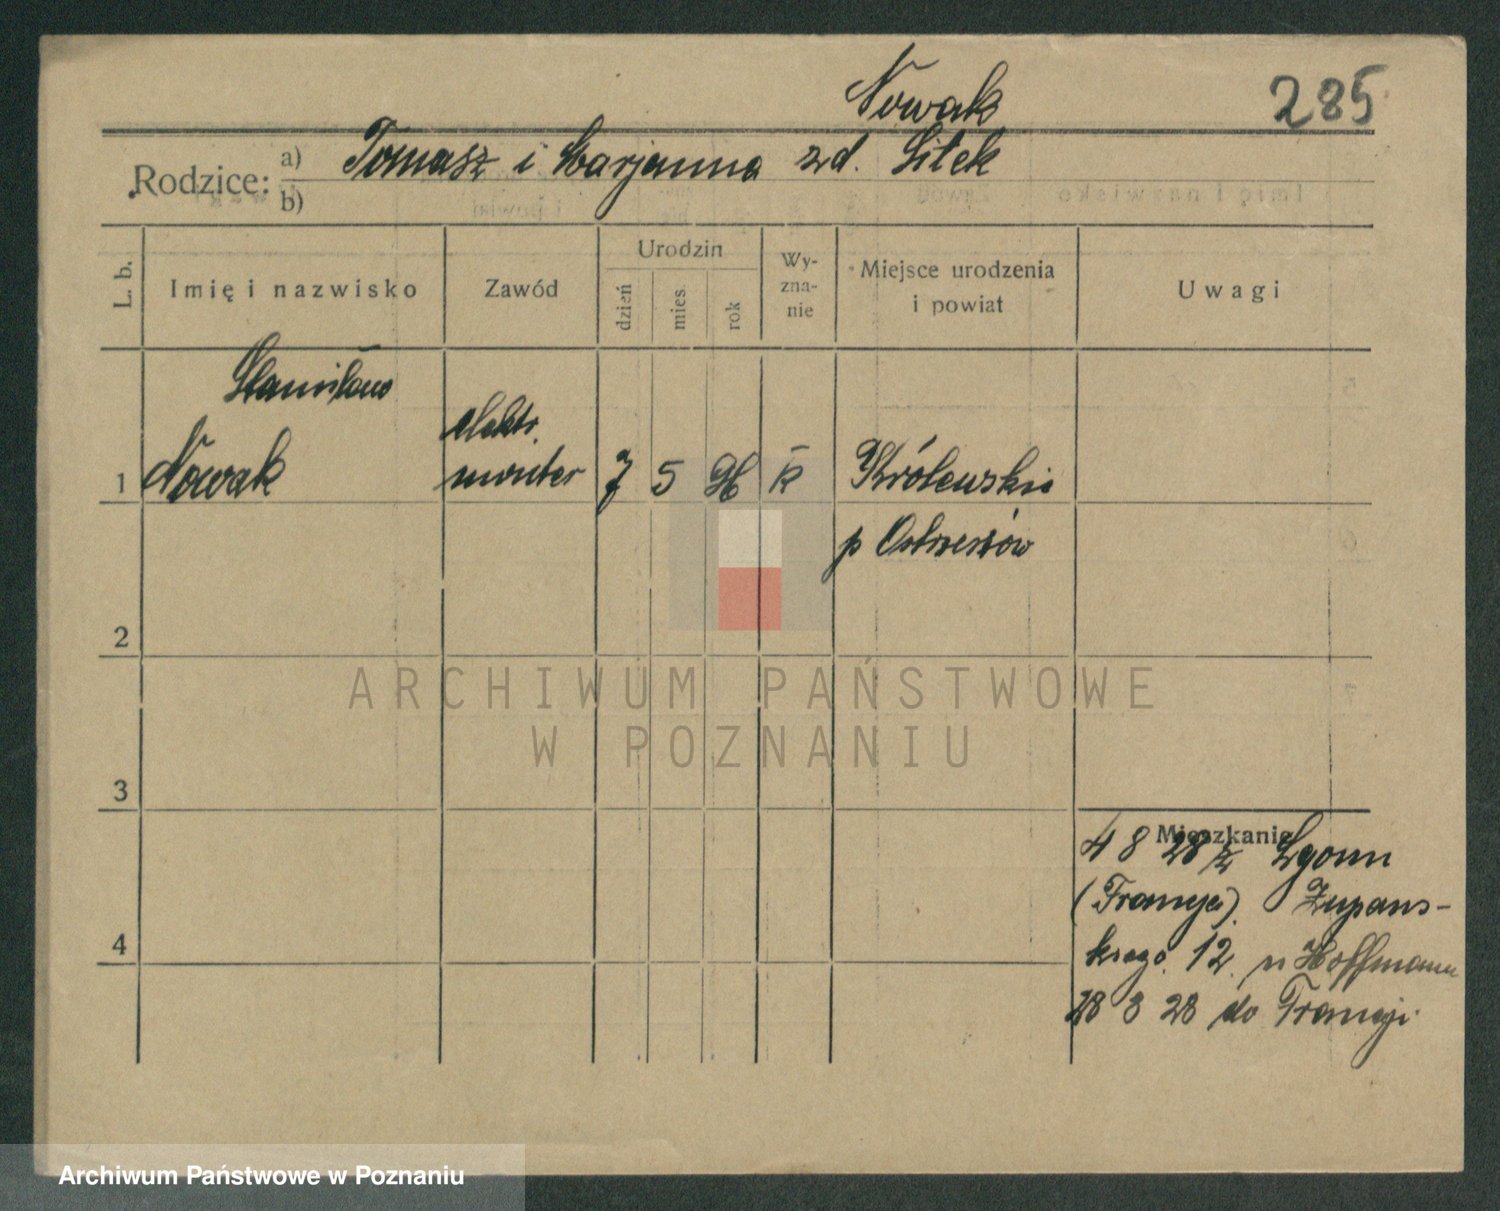 Nowak
285
Rodzice: a) Tomasz i Marjanna zd. Sitek
b)
L. b.
Imię i nazwisko
Zawód
Urodzin
dzień
mies.
rok
Wy-
zna-
nie
Miejsce urodzenia
i powiat
Uwagi
Stanisław
elektr.
1 Nowak monter 7 5 k Królewskie
p Ostrzeszów
2
ARCHIWUM PAŃSTWOWE
W POZNANIU
3
Mieszkanie
4 8 28 z Lyonu
(Francja). Żupańs-
kiego. 12. u Hoffmann
4
28 8 28 do Francji.
Archiwum Państwowe w Poznaniu